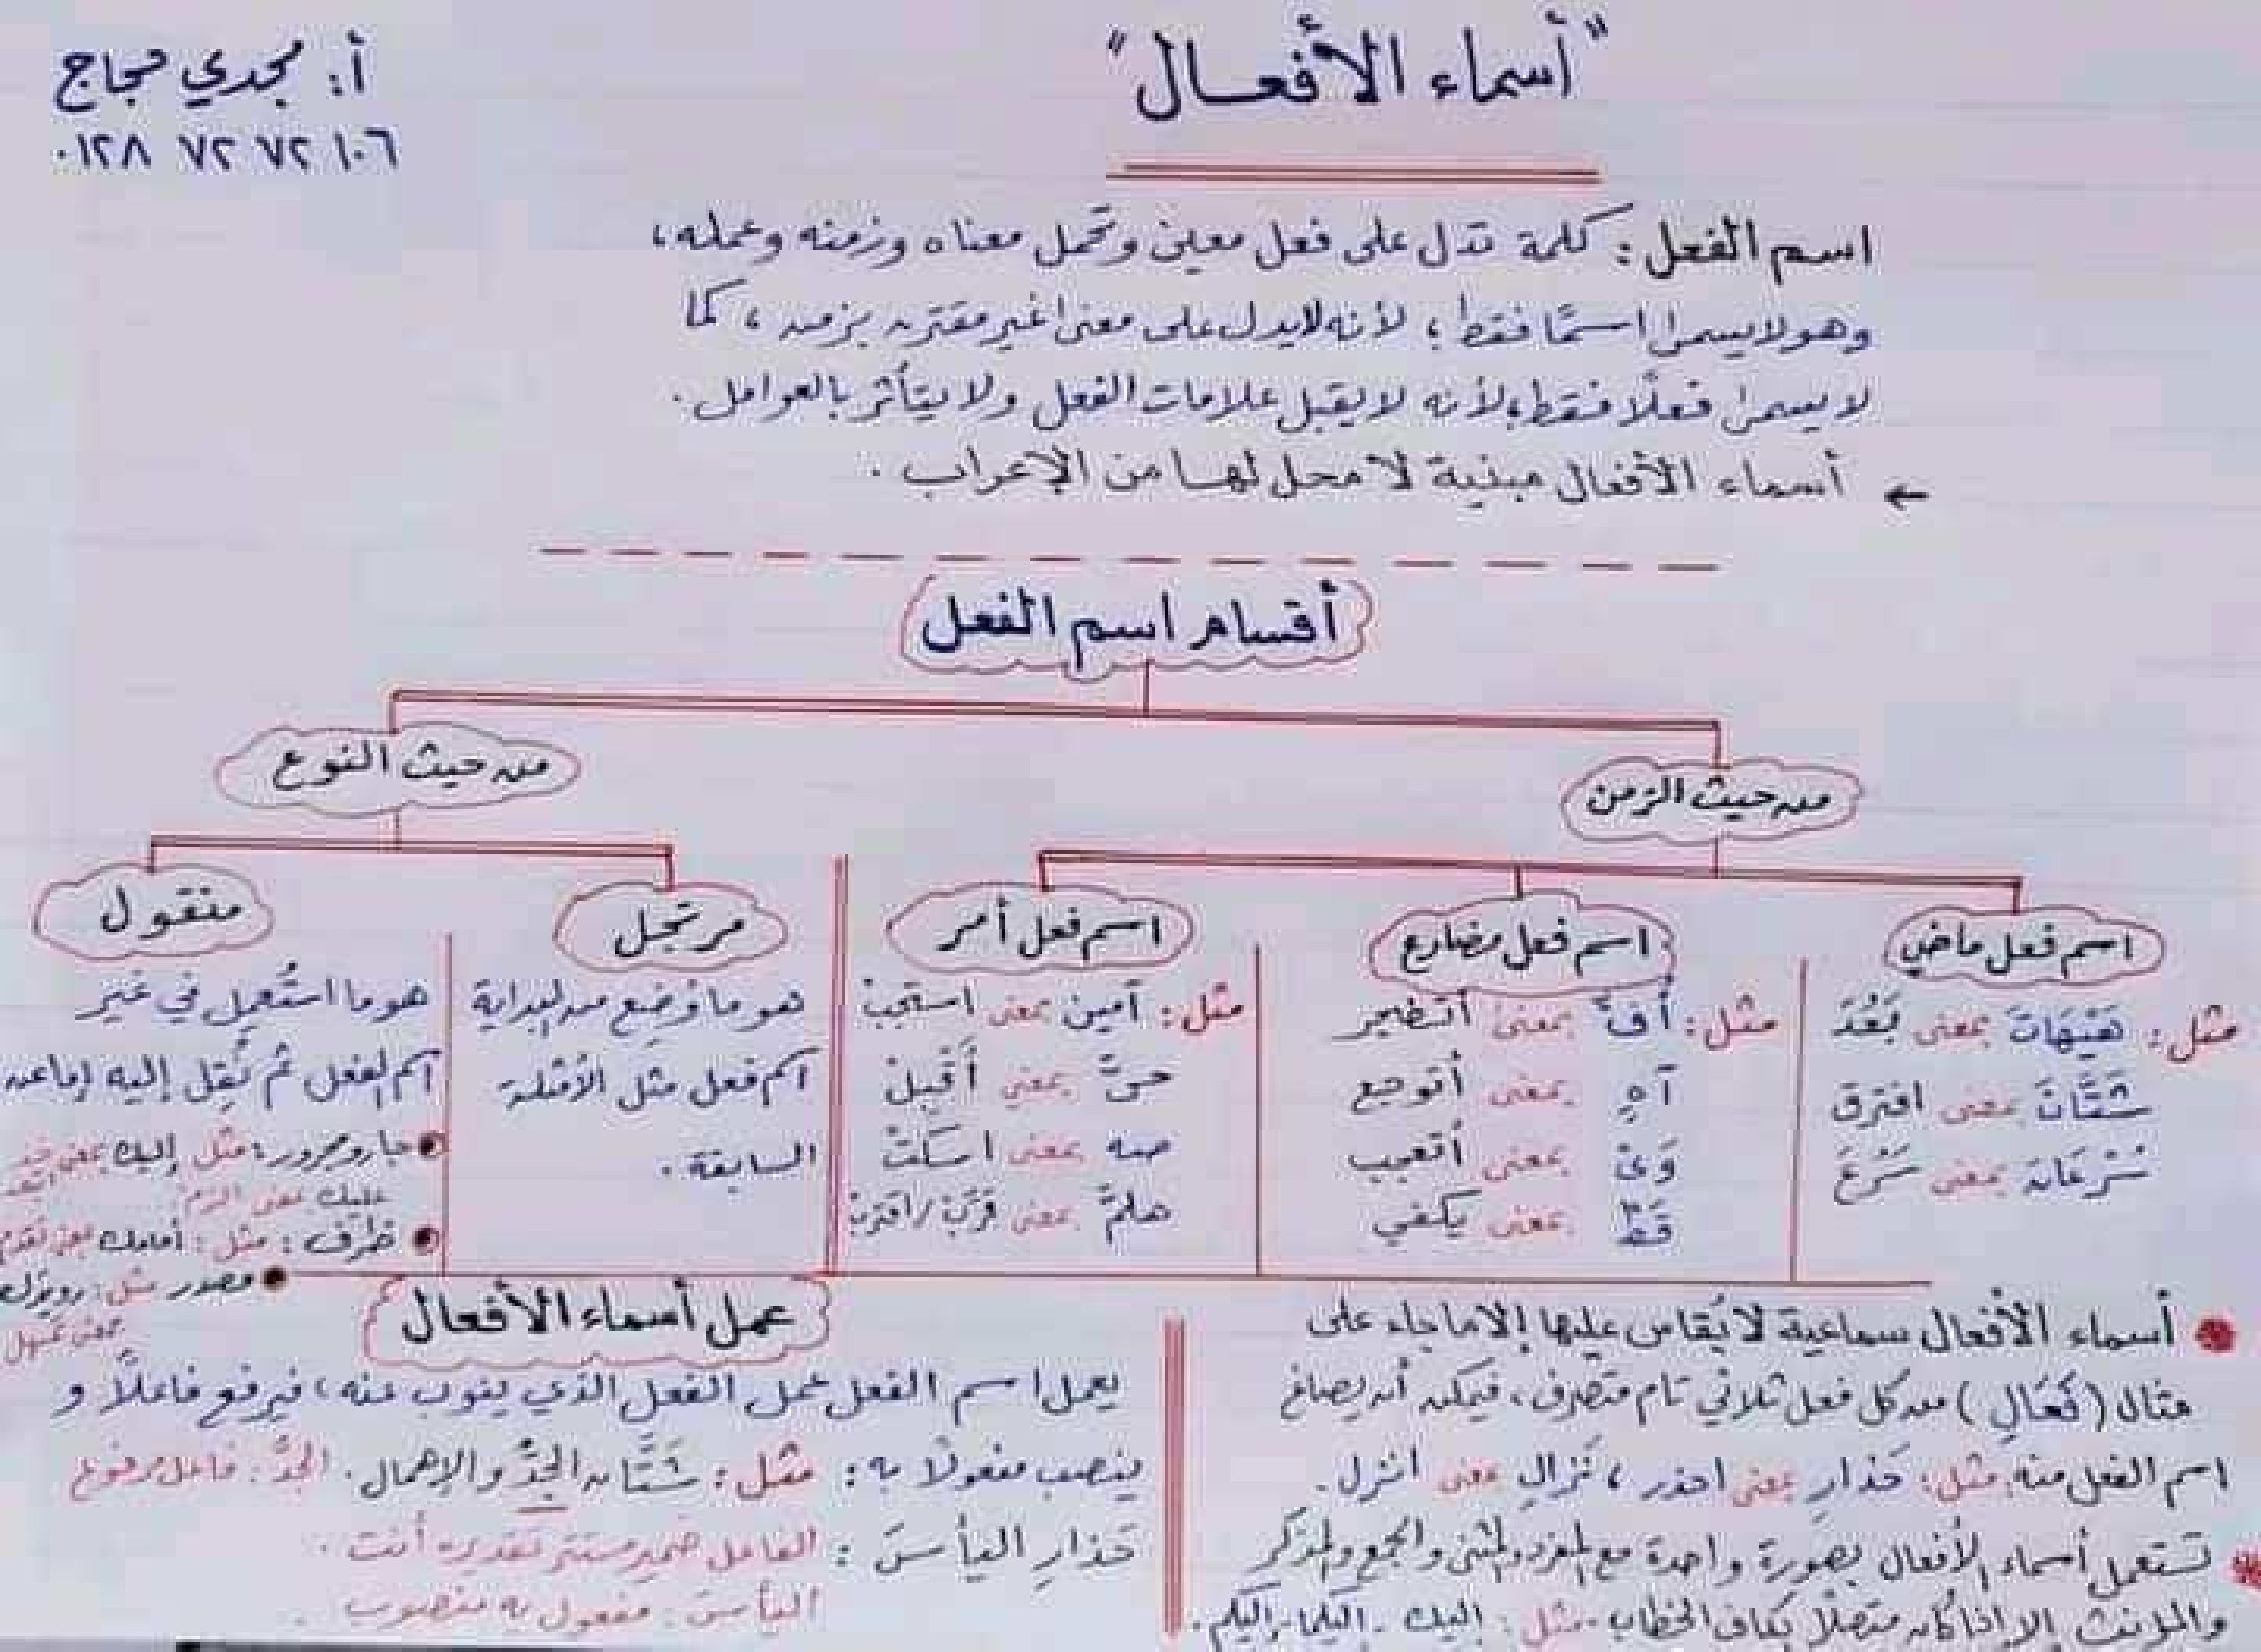 "أسماء الأفعال"
أ: مجدي حجاج
٠١٢٨ ٧٢ ٧٢ ١٠٦
اسم الفعل: كلمة تدل على فعل معين وتحمل معناه وزمنه وعمله،
وهو لا يسمى اسمًا فقط؛ لأنه لا يدل على معنى غير مقترن بزمن، كما
لا يسمى فعلًا فقط؛ لأنه لا يقبل علامات الفعل ولا يتأثر بالعوامل.
← أسماء الأفعال مبنية لا محل لها من الإعراب.
أقسام اسم الفعل
من حيث الزمن
من حيث النوع
اسم فعل ماضي
مثل: هَيْهَاتَ بمعنى بَعُدَ
شَتَّانَ بمعنى افترق
سُرْعَانَ بمعنى سَرُعَ
اسم فعل مضارع
مثل: أُفٍّ بمعنى أتضجر
آهٍ بمعنى أتوجع
وَىْ بمعنى أتعجب
قَطْ بمعنى يكفي
اسم فعل أمر
مثل: آمين بمعنى استجبْ
حىَّ بمعنى أَقْبِلْ
صه بمعنى اسكتْ
هلمَّ بمعنى قرِّبْ/اقتربْ
مرتجل
هو ما وُضِع من البداية
اسم فعل مثل الأمثلة
السابقة.
منقول
هو ما استُعمِل في غير
اسم الفعل ثم نُقِل إليه إما عن
● جار ومجرور: مثل إليك بمعنى خذ
ابتعد
عليك بمعنى الزم
● ظرف: مثل: أمامك بمعنى تقدم
● مصدر مثل: رويدك
بمعنى تمهل
● أسماء الأفعال سماعية لا يُقاس عليها إلا ما جاء على
مثال (فَعَالِ) من كل فعل ثلاثي تام متصرف، فيمكن أن يصاغ
اسم الفعل منه، مثل: حَذارِ بمعنى احذر، نَزالِ بمعنى انزل.
تستعمل أسماء الأفعال بصورة واحدة مع المفرد والمثنى والجمع والمذكر
والمؤنث إلا إذا كان متصلًا بكاف الخطاب مثل: إليك، إليكما، إليكم.
عمل أسماء الأفعال
يعمل اسم الفعل عمل الفعل الذي ينوب عنه، فيرفع فاعلًا و
ينصب مفعولًا به: مثل: شَتَّانَ الجدُّ والإهمال. الجدُّ: فاعل مرفوع
حَذارِ اليأسَ: الفاعل ضمير مستتر تقديره أنت.
اليأسَ: مفعول به منصوب.